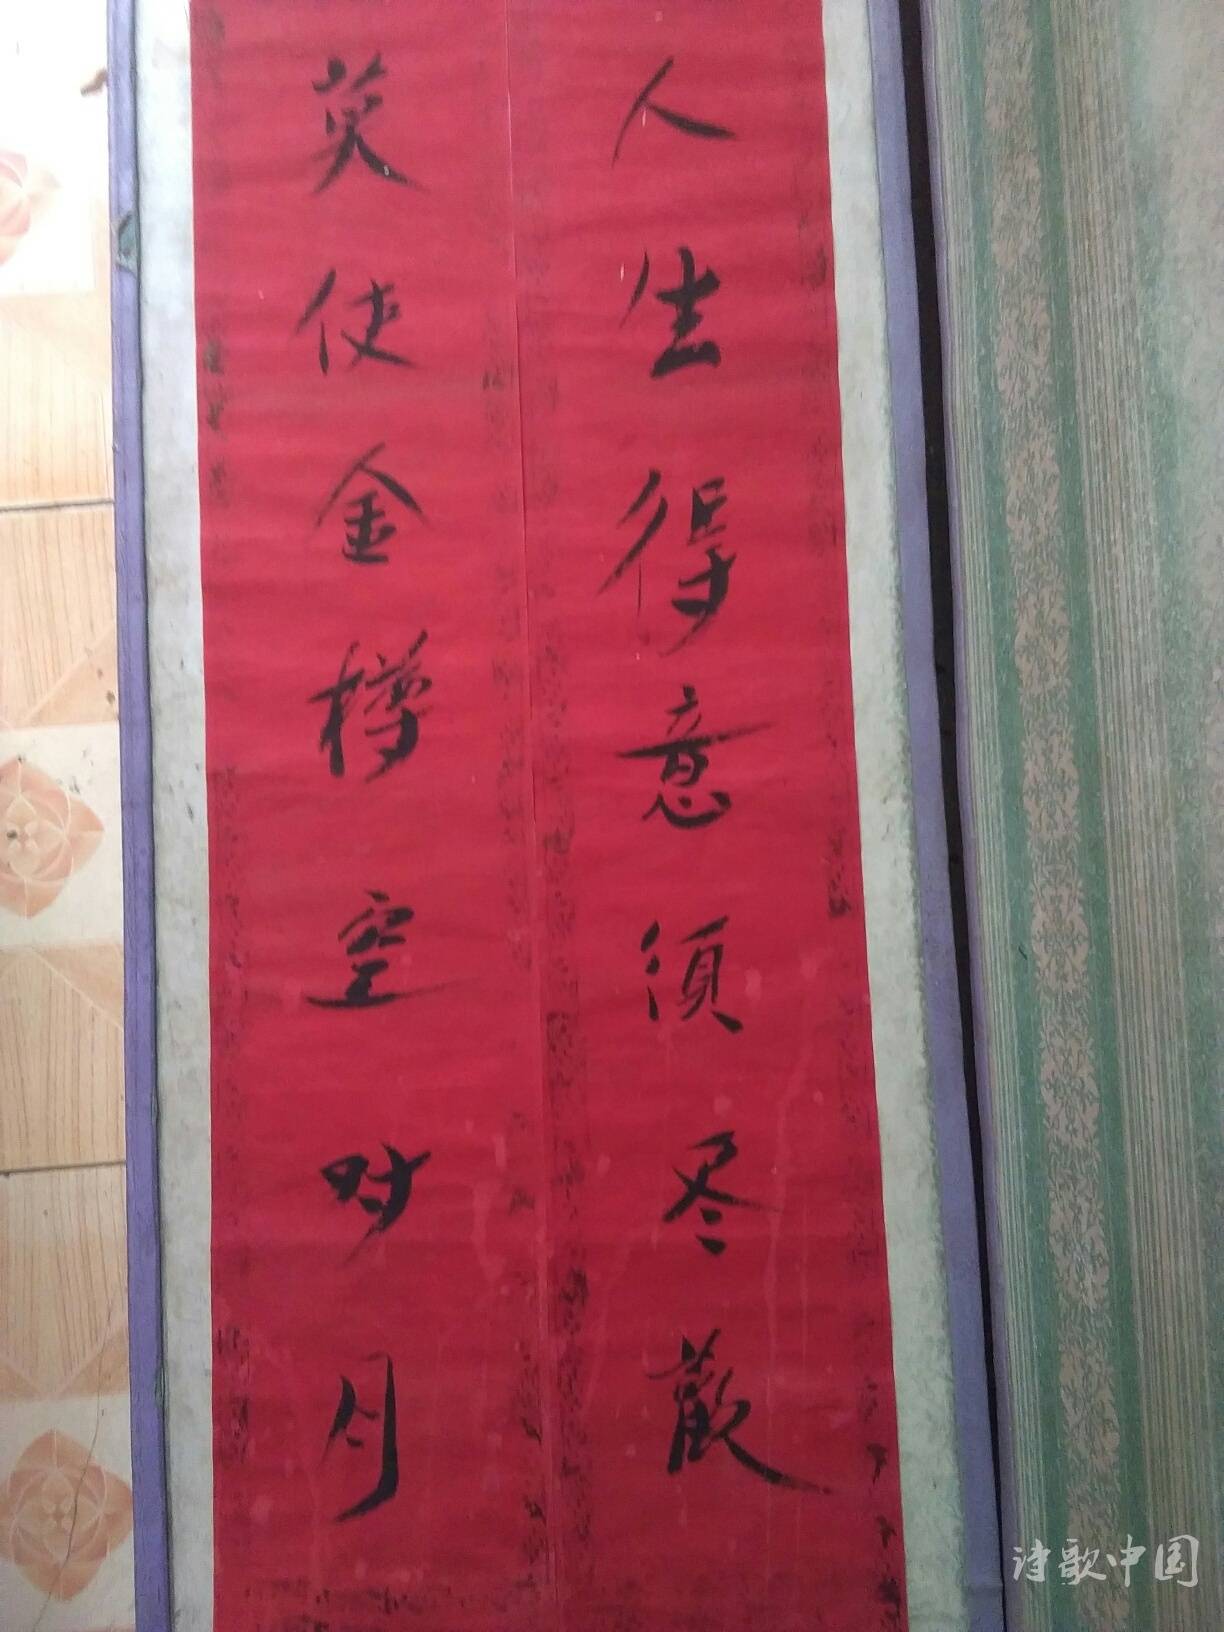 人生得意须尽歡
莫使金樽空对月
诗歌中国